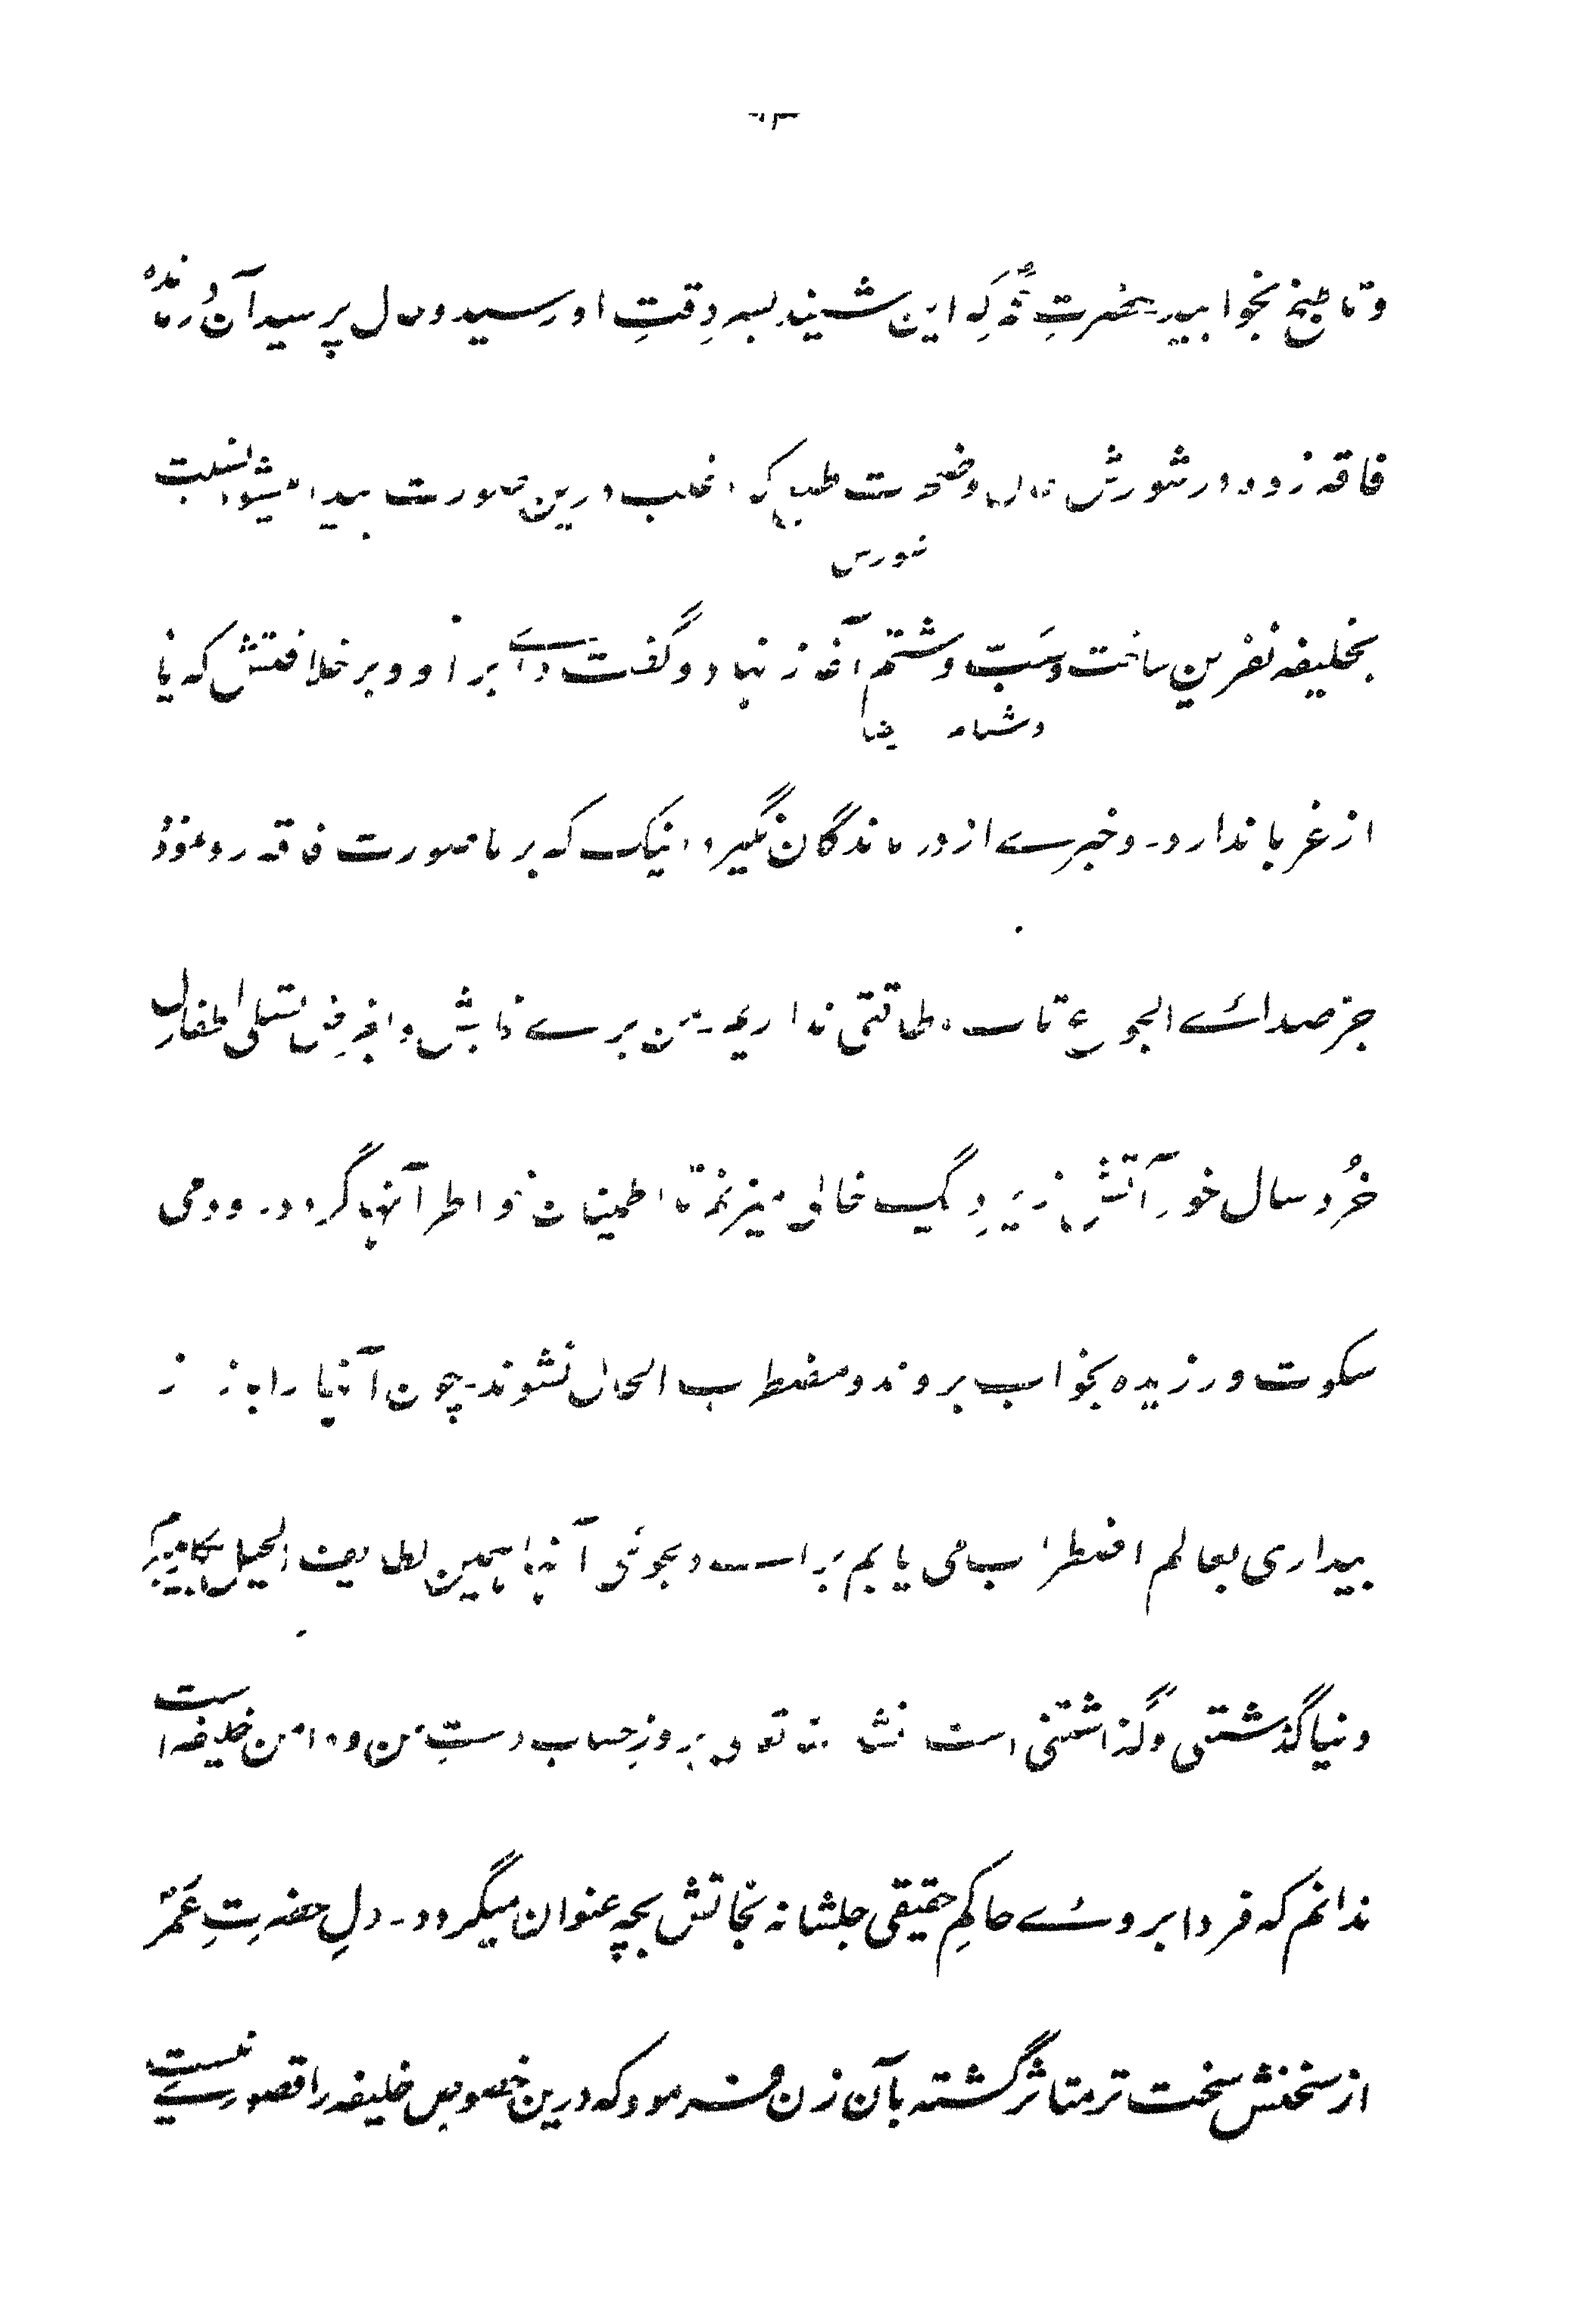 و تا طبخ بخوابید حضرتِ عمر کہ این شنید بسر وقتِ او رسید و حال پرسید آن درماندہ
فاقہ زدہ در شورش طبع کہ اغلب درین صورت پیدا میشود نسبت
شورش
بخلیفہ نفرین ساخت و سَبّ و شتم آغاز نہاد و گفت وائے بر او و بر خلافتش کہ
دشنام
از غربا ندارد۔ و خبرے از درماندگان نگیرد اینک کہ بر ما صورت فاقہ رو نمود
جز صدائے الجوع تاب و طاقتی نداریم۔ من برائے و بغرض تسلی اطفالِ
خُرد سال خود آتش زیر دیگ خالی میزنم تا اطمینان خواطر آنہا گردد۔ و دمی
سکوت ورزیدہ بخواب بروند و مضطرب الحال نشوند۔ چون آنہا را باز از
بیداری بعالم اضطراب می یابم براے دلجوئی آنہا ہمین لطایف الحیل
دنیا گذشتنی و گذاشتنی است بروزِ حساب دستِ من و دامن خلیفہ است
ندانم کہ فردا بروئے حاکمِ حقیقی جلشانہ نجاتش بچہ عنوان میگردد۔ دلِ حضرتِ عمرؓ
از سخنش سخت تر متاثر گشتہ بآن زن فرمود کہ درین خصوص خلیفہ را قصورے نیست